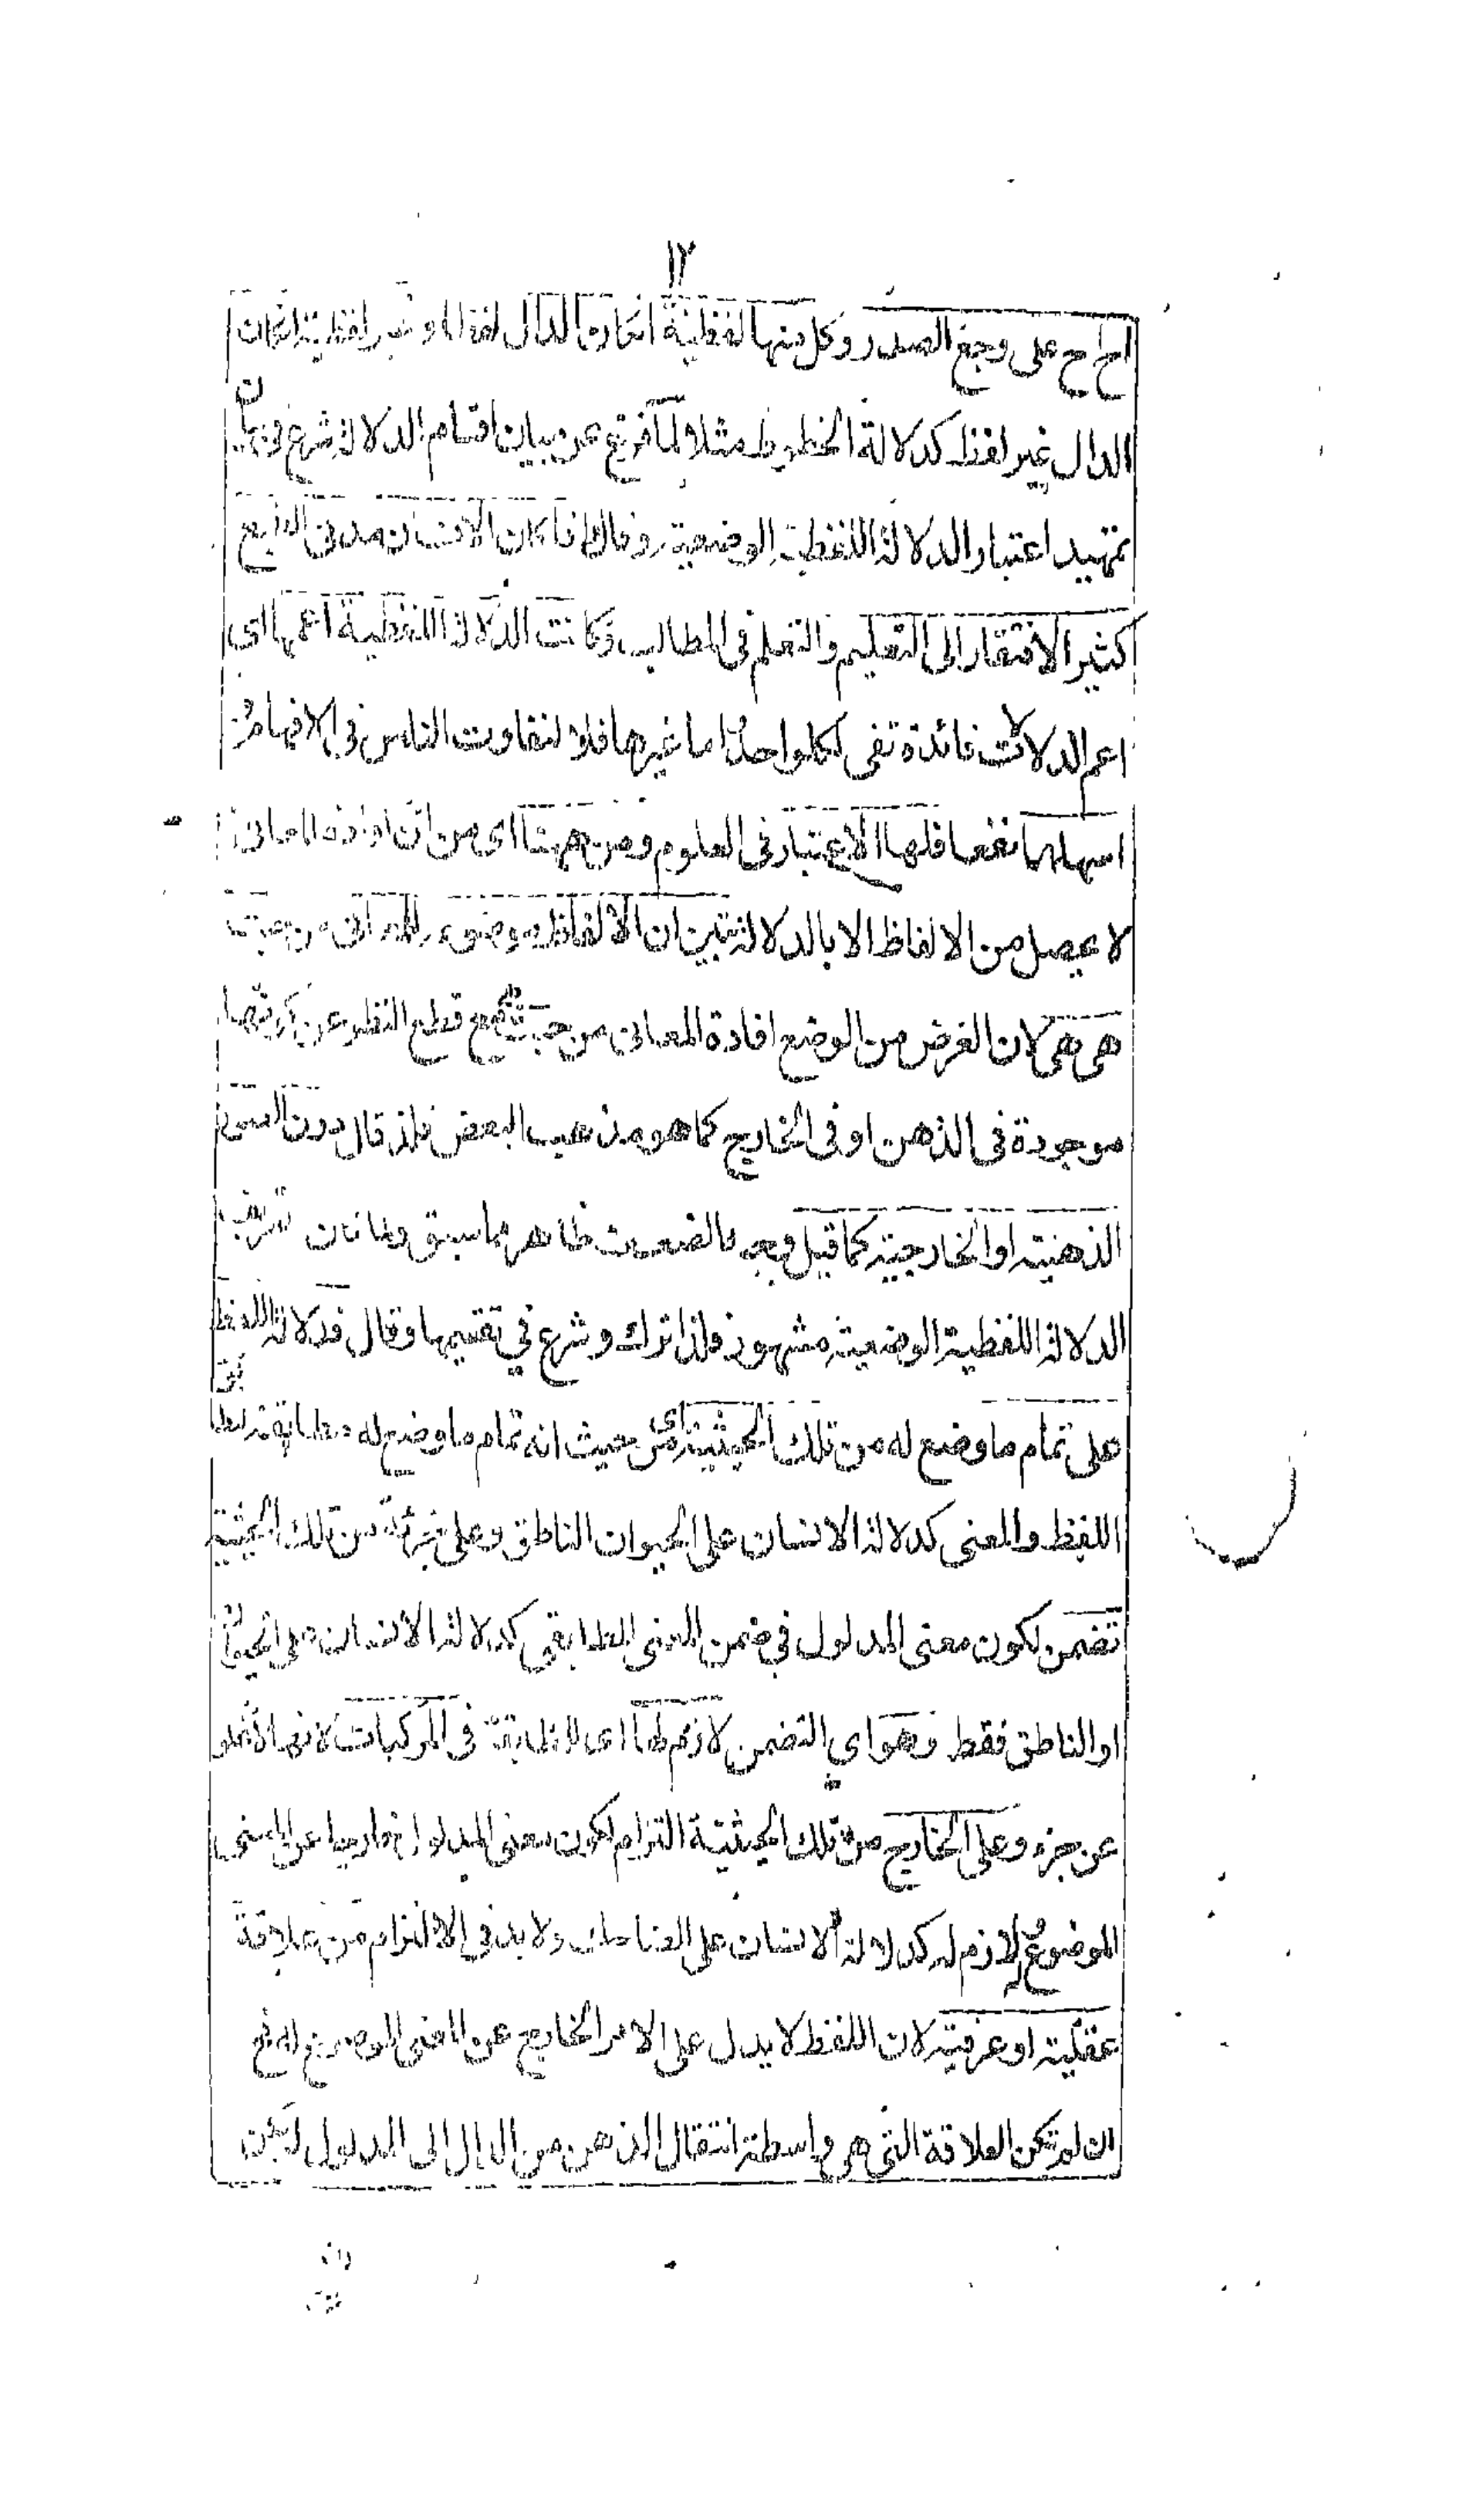 ١٢
اح اح على وجع الصدر وكل منها لفظية انكان الدال لفظا او غير لفظية انكان
الدال غير لفظ كدلالة الخطوط مثلا لما فرغ عن بيان اقسام الدلالة شرع في بيان
تمهيد اعتبار الدلالة اللفظية الوضعية وقال اذا كان الانسان مدني الطبع
كثير الافتقار الى التعليم والتعلم في المطالب وكانت الدلالة اللفظية اعمها اى
اعم الدلالات فائدة تفى لكل واحد اما غيرها فلا لتفاوت الناس في الافهام و
اسهلها نفعا فلها الاعتبار في العلوم ومن ههنا اى من ان افادة المعانى
لا يحصل من الالفاظ الا بالدلالة تبين ان الالفاظ موضوعة للمعانى من حيث
هى هى لان الغرض من الوضع افادة المعانى من حيث هى مع قطع النظر عن كونها
موجودة فى الذهن او فى الخارج كما هو مذهب البعض فلذ قال دون الصور
الذهنية او الخارجية كما قيل وجه الضعف ظاهر مما سبق ولما كان تعريف
الدلالة اللفظية الوضعية مشهورة فلذا ترك وشرع في تقسيمها وقال فدلالة اللفظ
على تمام ما وضع له من تلك الحيثية اى من حيث انه تمام ما وضع له مطابقة لتطابق
اللفظ والمعنى كدلالة الانسان على الحيوان الناطق وعلى جزئه من تلك الحيثية
تضمن لكون معنى المدلول في ضمن المعنى المطابقى كدلالة الانسان على الحيوان
او الناطق فقط وهو اى التضمن لازم لها اى للمطابقة فى المركبات لانها لا تخلو
عن جزء وعلى الخارج من تلك الحيثية التزام لكون معنى المدلول خارجا عن المعنى
الموضوع له لازم له كدلالة الانسان على الضاحك ولا بد في الالتزام من علاقة
عقلية او عرفية لان اللفظ لا يدل على الامر الخارج عن المعنى الموضوع له فح
ان لم تكن العلاقة التى هى واسطة انتقال الذهن من الدال الى المدلول لم يكن